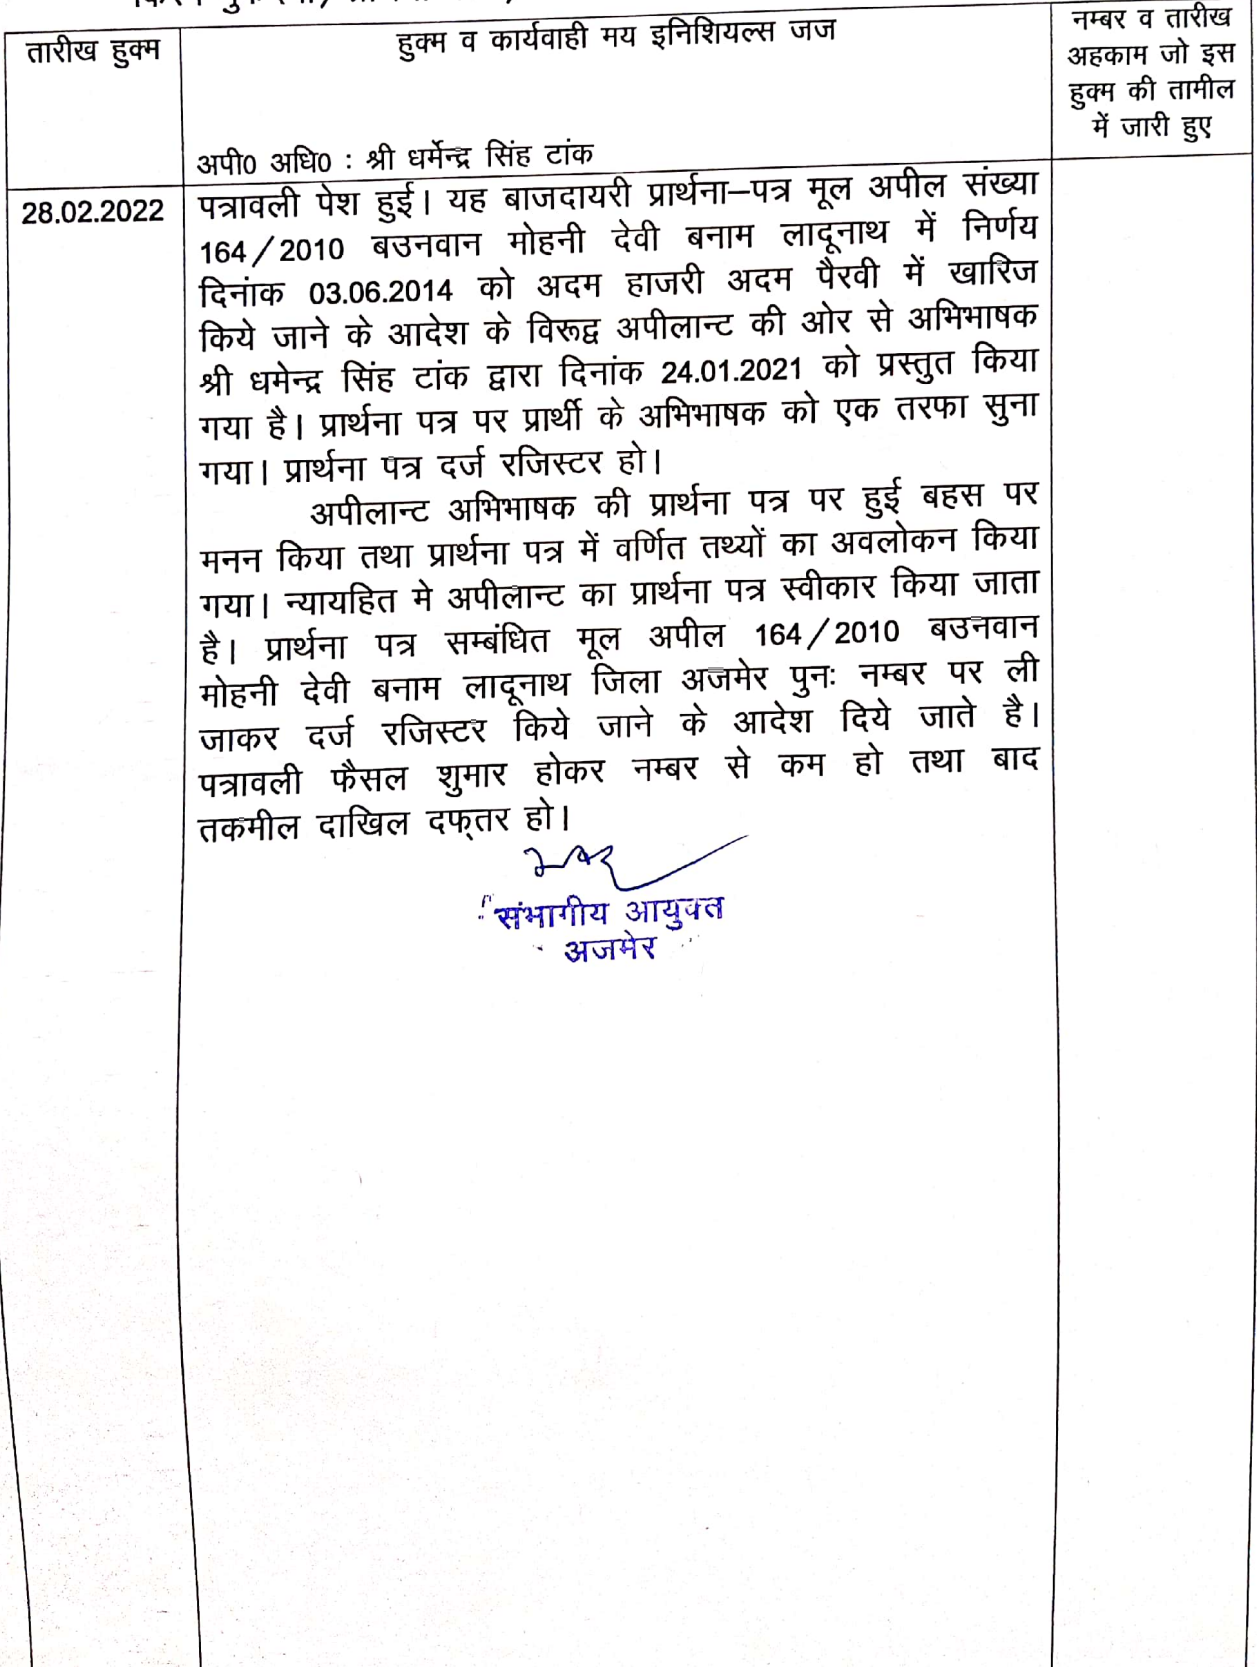 तारीख हुक्म
हुक्म व कार्यवाही मय इनिशियल्स जज
नम्बर व तारीख
अहकाम जो इस
हुक्म की तामील
में जारी हुए
अपी0 अधि0 : श्री धर्मेन्द्र सिंह टांक
28.02.2022
पत्रावली पेश हुई। यह बाजदायरी प्रार्थना–पत्र मूल अपील संख्या
164/2010 बउनवान मोहनी देवी बनाम लादूनाथ में निर्णय
दिनांक 03.06.2014 को अदम हाजरी अदम पैरवी में खारिज
किये जाने के आदेश के विरूद्व अपीलान्ट की ओर से अभिभाषक
श्री धमेन्द्र सिंह टांक द्वारा दिनांक 24.01.2021 को प्रस्तुत किया
गया है। प्रार्थना पत्र पर प्रार्थी के अभिभाषक को एक तरफा सुना
गया। प्रार्थना पत्र दर्ज रजिस्टर हो।
अपीलान्ट अभिभाषक की प्रार्थना पत्र पर हुई बहस पर
मनन किया तथा प्रार्थना पत्र में वर्णित तथ्यों का अवलोकन किया
गया। न्यायहित मे अपीलान्ट का प्रार्थना पत्र स्वीकार किया जाता
है। प्रार्थना पत्र सम्बंधित मूल अपील 164/2010 बउनवान
मोहनी देवी बनाम लादूनाथ जिला अजमेर पुनः नम्बर पर ली
जाकर दर्ज रजिस्टर किये जाने के आदेश दिये जाते है।
पत्रावली फैसल शुमार होकर नम्बर से कम हो तथा बाद
तकमील दाखिल दफ्तर हो।
संभागीय आयुक्त
अजमेर